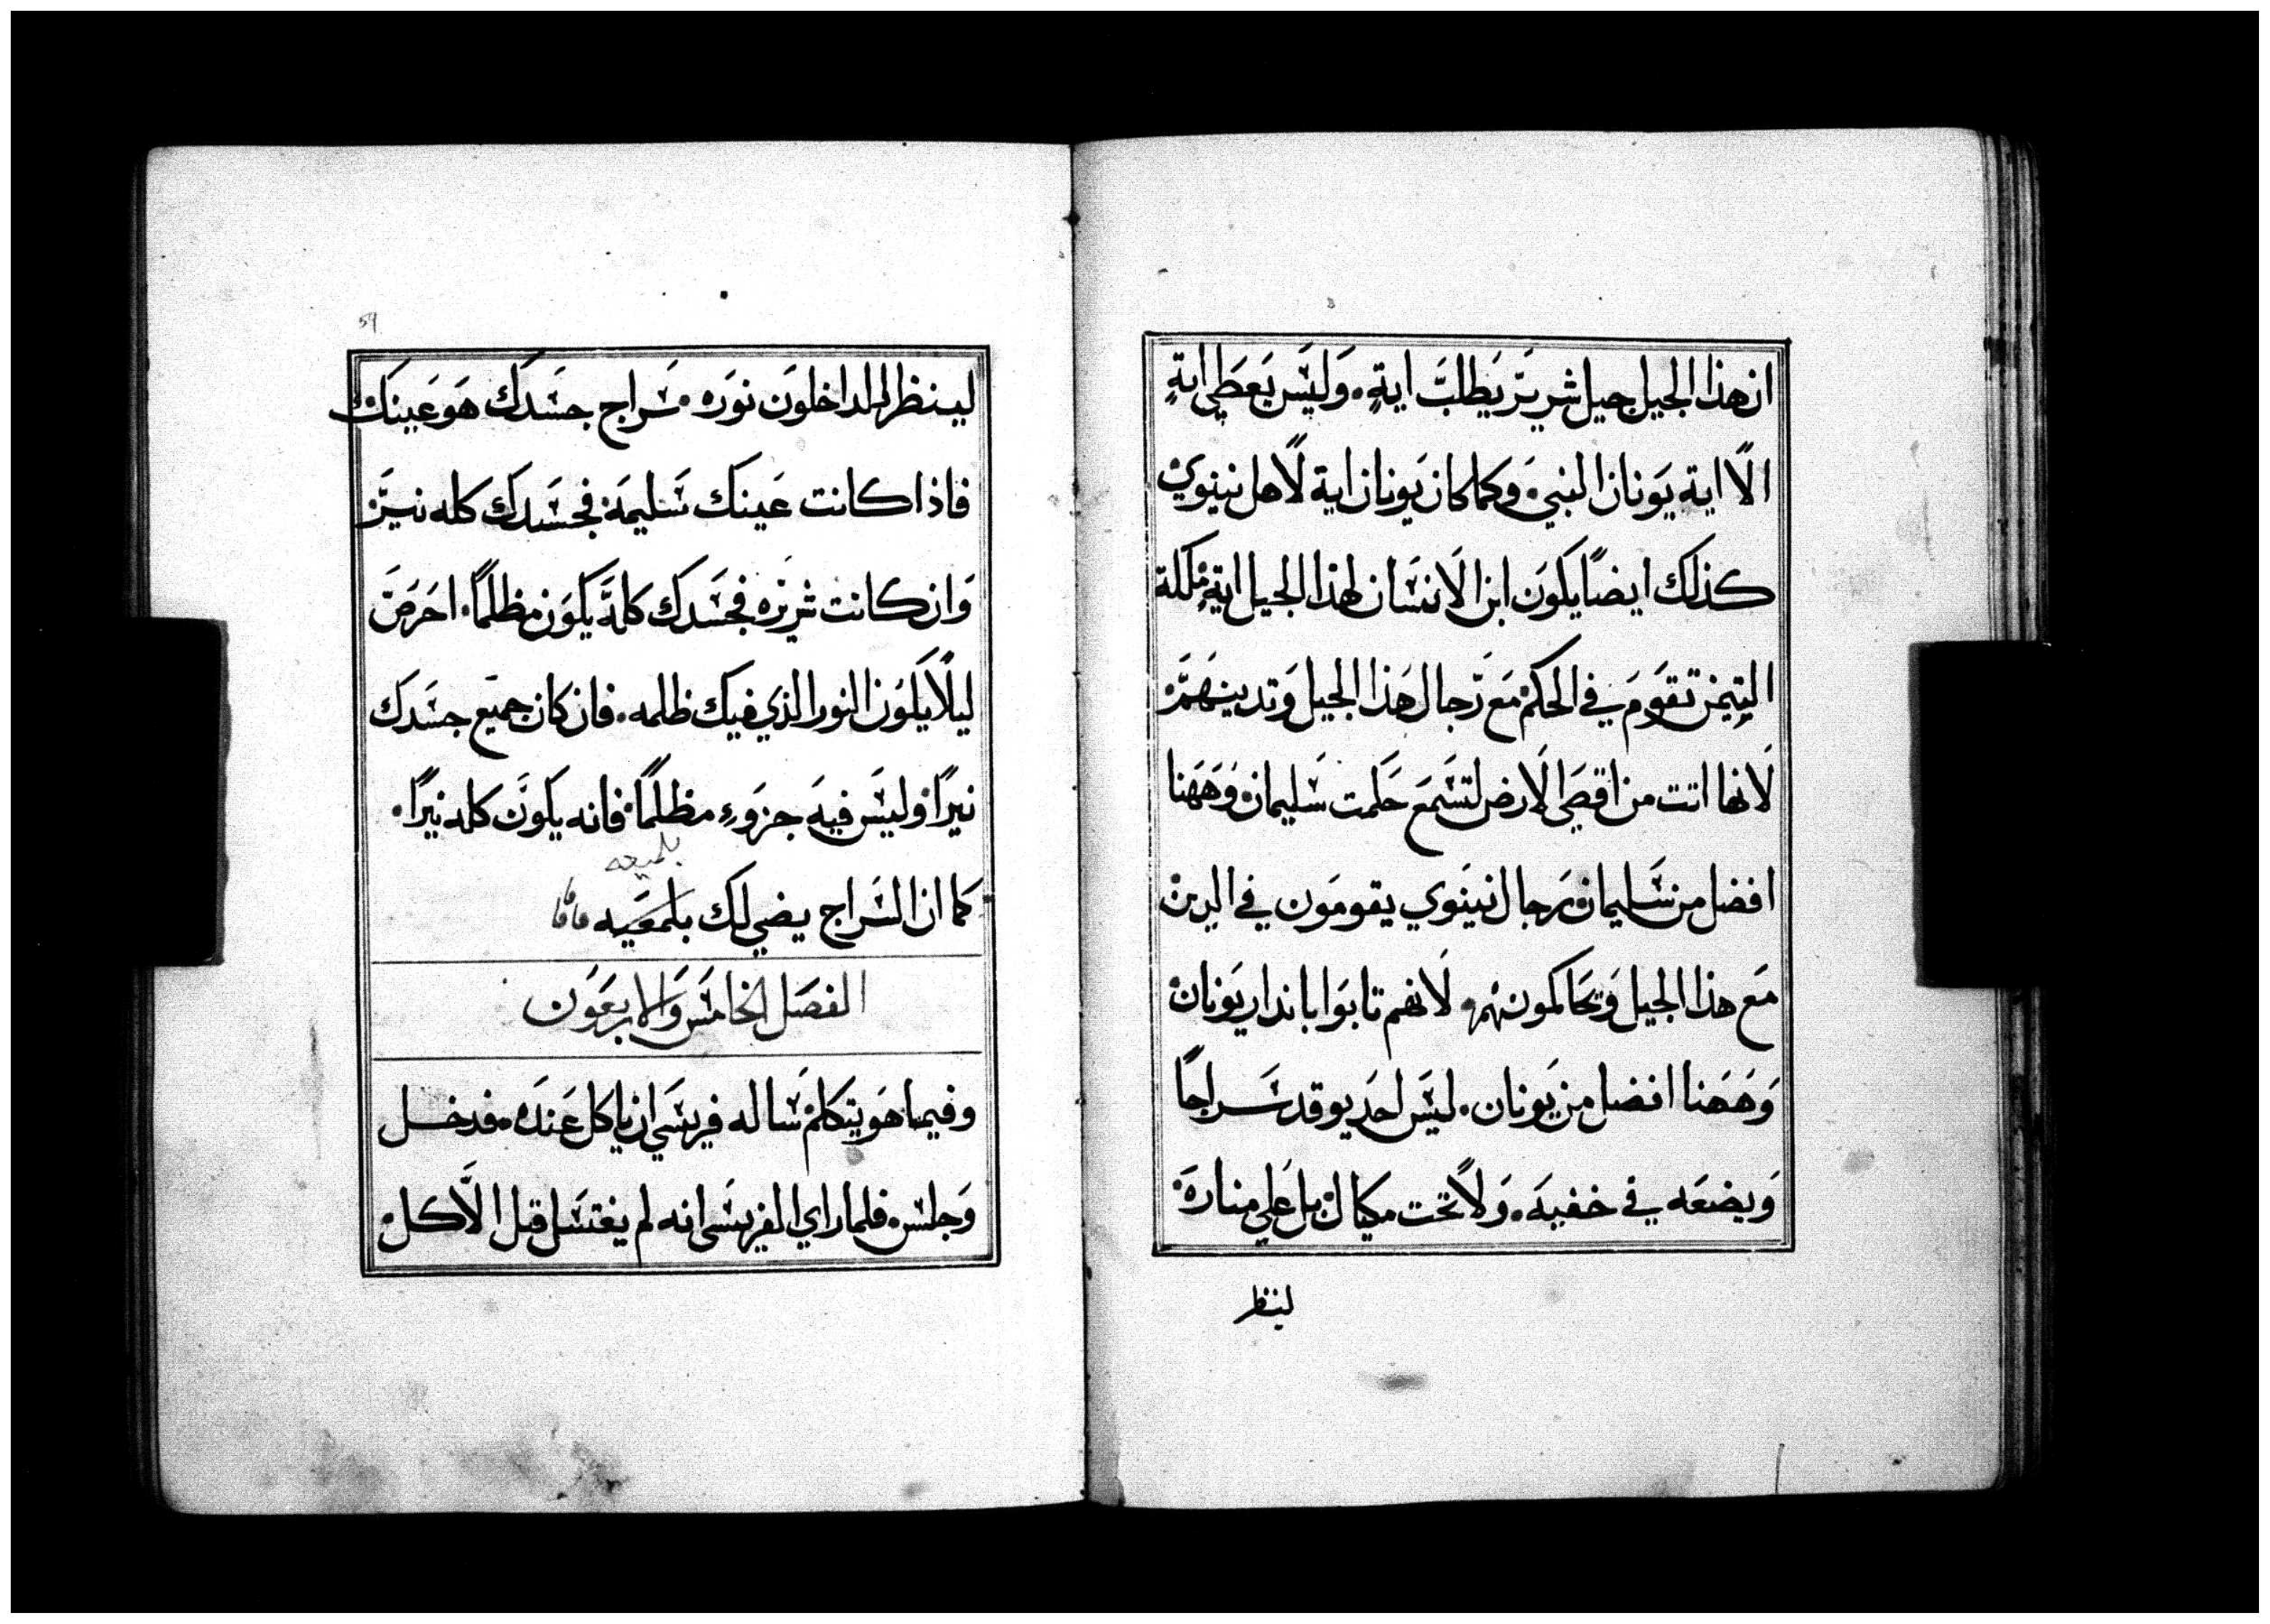 ان هذا الجيل جيل شرير يطلب اية. وليس يعطي اية
الا اية يونان النبي. وكما كان يونان اية لاهل نينوي
كذلك ايضًا يكون ابن الانسان لهذا الجيل اية. ملكة
التيمن تقوم في الحكم مع رجال هذا الجيل وتدينهم
لانها اتت من اقصي الارض لتسمع حكمت سليمان وههنا
افضل من سليمان رجال نينوي يقومون في الدين
مع هذا الجيل ويحاكمونهم. لانهم تابوا بانذار يونان
وههنا افضل من يونان. ليس احد يوقد سراجًا
ويضعه في خفيه. ولا تحت مكيال بل علي مناره
لينظر
54
لينظر الداخلون نوره. سراج جسدك هو عينك
فاذا كانت عينك سليمه فجسدك كله نير
وان كانت شريره فجسدك كله يكون مظلمًا. احرص
ليلا يكون النور الذي فيك ظلمه. فان كان جميع جسدك
نيرًا وليس فيه جزوء مظلمًا فانه يكون كله نيرًا.
بلميعه
كما ان السراج يضي لك بلمعيه
الفصل الخامس والاربعون
وفيما هو يتكلم ساله فريسي ان ياكل عنده. فدخل
وجلس. فلما راي الفريسي انه لم يغتسل قبل الاكل